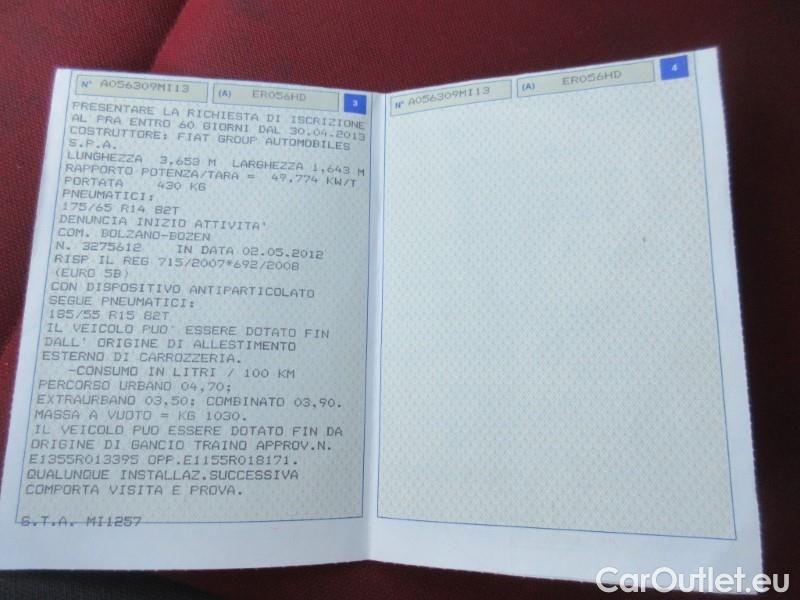 N° A056309MI13 (A) ER056HD 3
PRESENTARE LA RICHIESTA DI ISCRIZIONE
AL PRA ENTRO 60 GIORNI DAL 30.04.2013
COSTRUTTORE: FIAT GROUP AUTOMOBILES
S.P.A.
LUNGHEZZA 3,653 M LARGHEZZA 1,643 M
RAPPORTO POTENZA/TARA = 49,774 KW/T
PORTATA 430 KG
PNEUMATICI:
175/65 R14 82T
DENUNCIA INIZIO ATTIVITA'
COM. BOLZANO-BOZEN
N. 3275612 IN DATA 02.05.2012
RISP IL REG 715/2007*692/2008
(EURO 5B)
CON DISPOSITIVO ANTIPARTICOLATO
SEGUE PNEUMATICI:
185/55 R15 82T
IL VEICOLO PUO' ESSERE DOTATO FIN
DALL' ORIGINE DI ALLESTIMENTO
ESTERNO DI CARROZZERIA.
-CONSUMO IN LITRI / 100 KM
PERCORSO URBANO 04,70;
EXTRAURBANO 03,50; COMBINATO 03,90.
MASSA A VUOTO = KG 1030.
IL VEICOLO PUO ESSERE DOTATO FIN DA
ORIGINE DI GANCIO TRAINO APPROV.N.
E1355R013395 OPP.E1155R018171.
QUALUNQUE INSTALLAZ.SUCCESSIVA
COMPORTA VISITA E PROVA.
S.T.A. MI1257
N° A056309MI13 (A) ER056HD 4
CarOutlet.eu